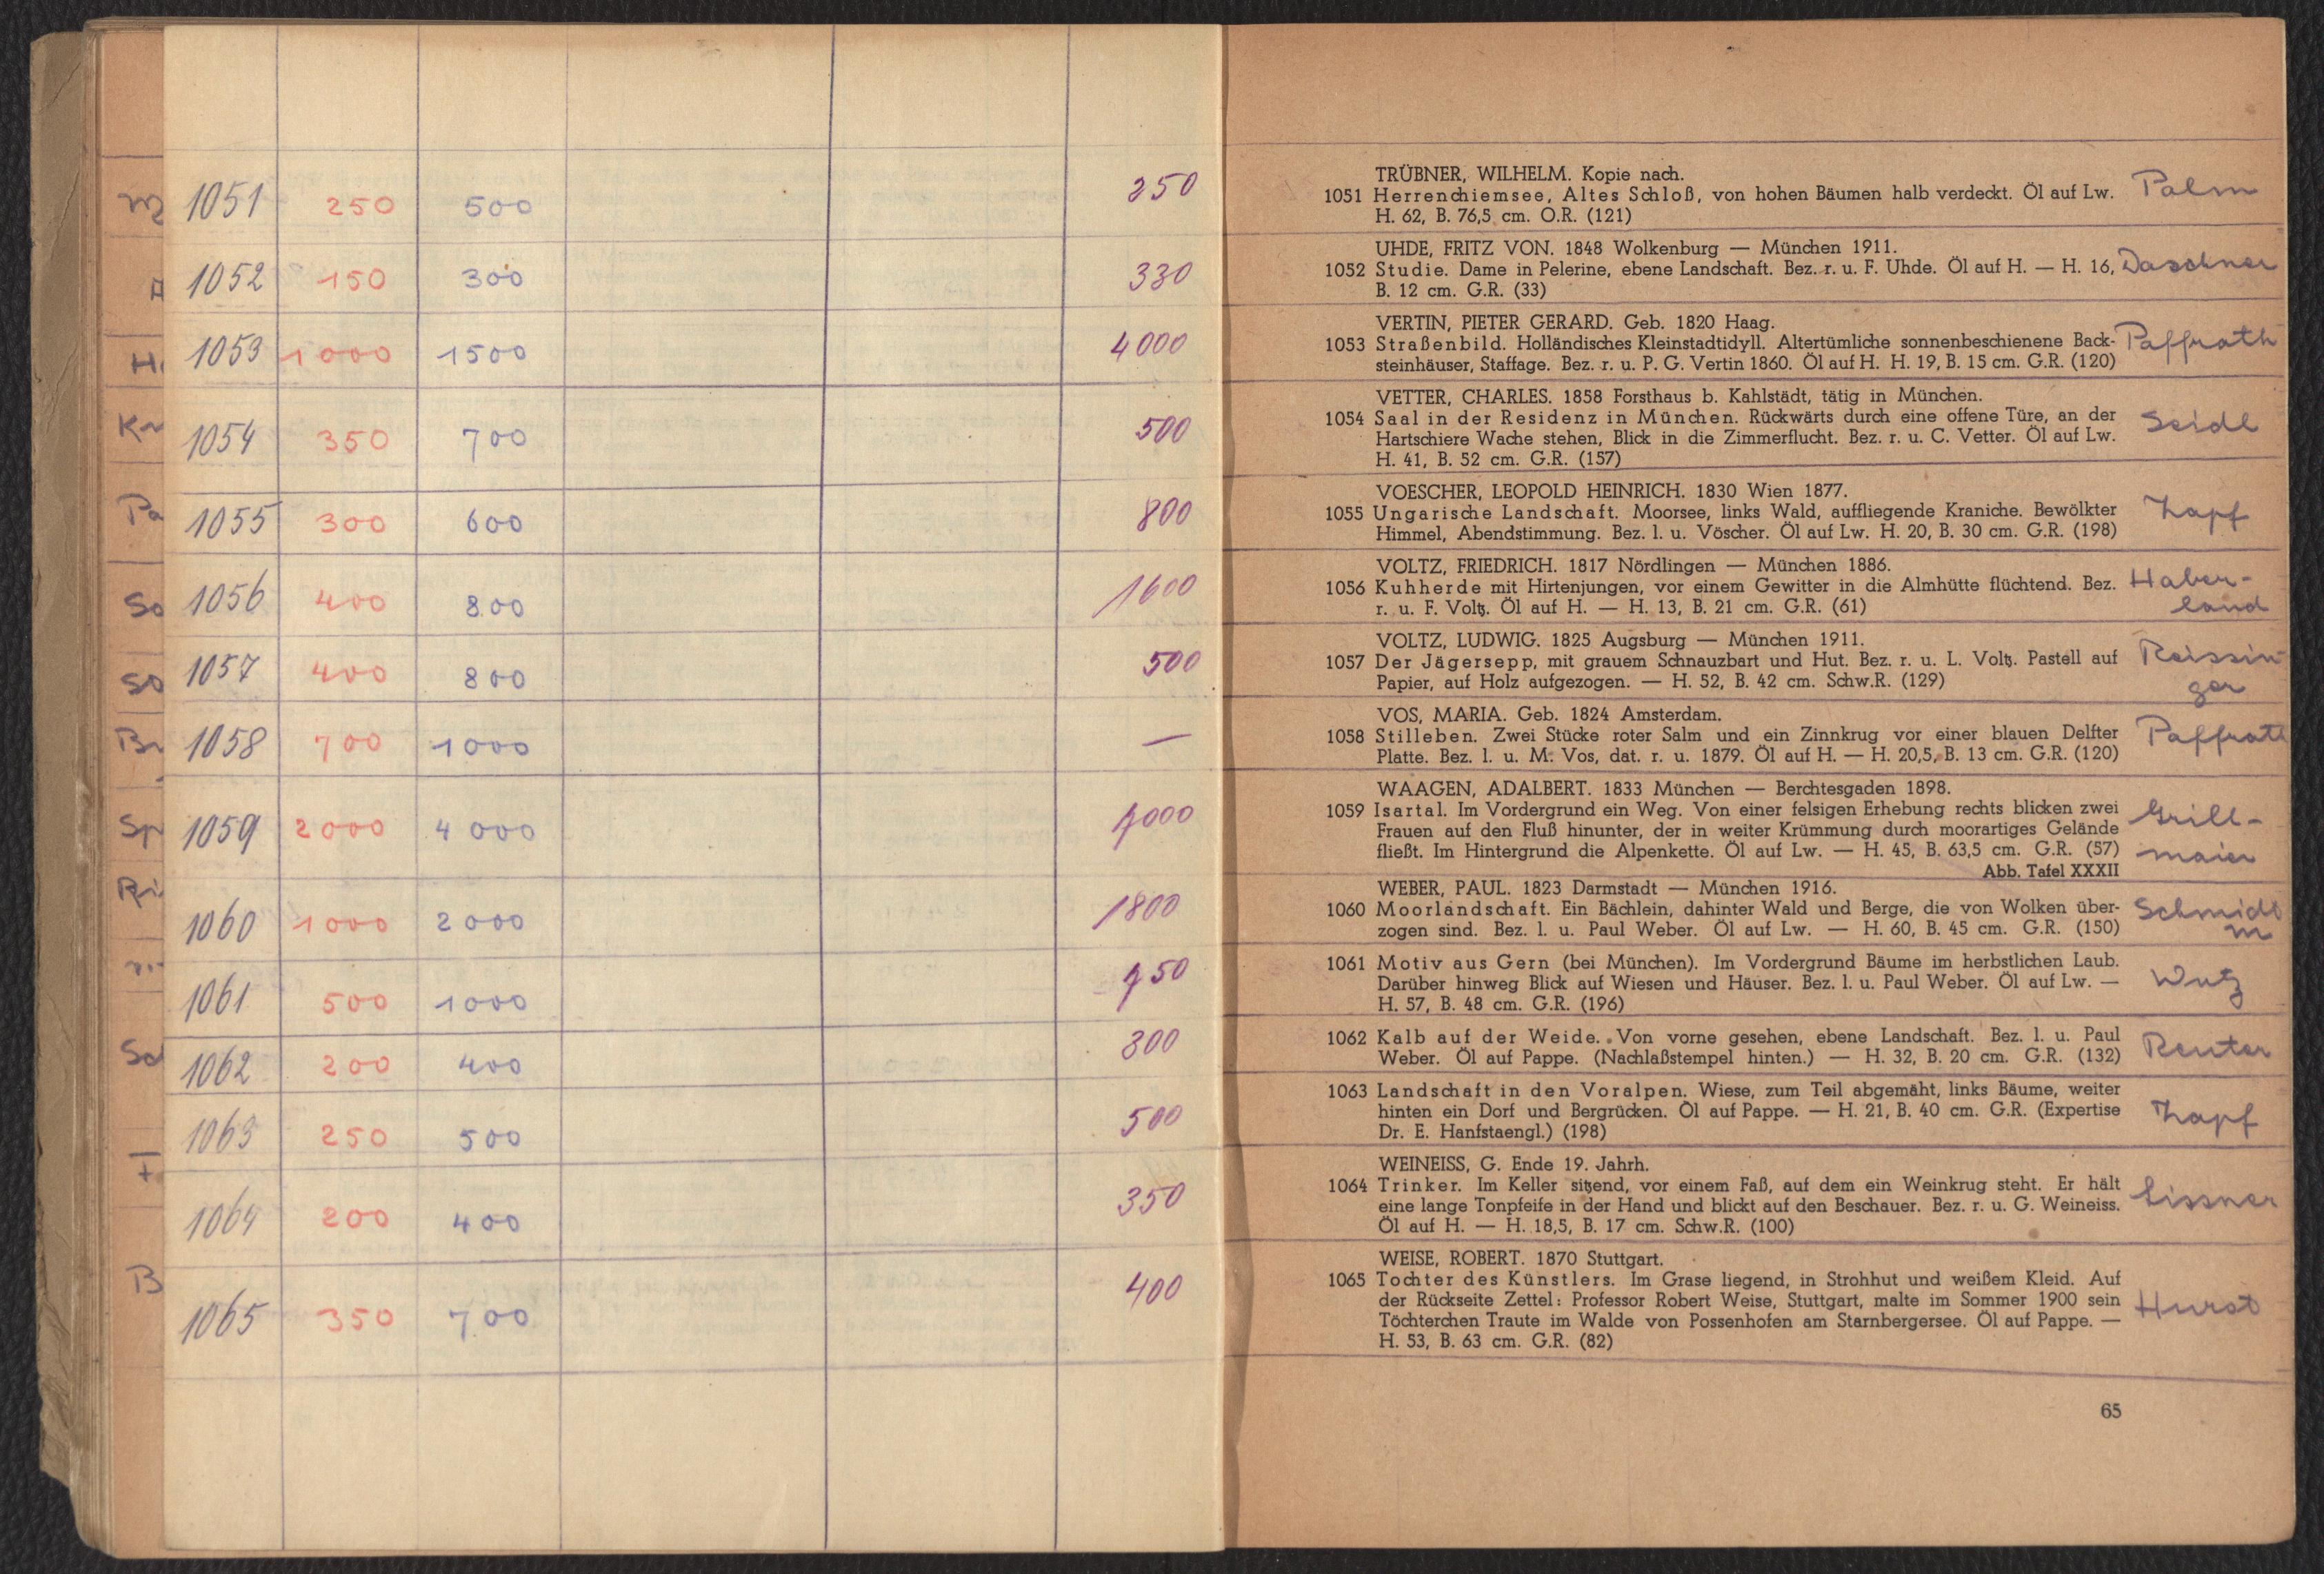 1051 250 500 250
1052 150 300 330
1053 1000 1500 4000
1054 350 700 500
1055 300 600 800
1056 400 800 1600
1057 400 800 500
1058 700 1000 —
1059 2000 4000
1060 1000 2000 1800
1061 500 1000
1062 200 400 300
1063 250 500 500
1064 200 400 350
1065 350 700 400
TRÜBNER, WILHELM. Kopie nach.
1051 Herrenchiemsee, Altes Schloß, von hohen Bäumen halb verdeckt. Öl auf Lw. Palm
H. 62, B. 76,5 cm. O.R. (121)
UHDE, FRITZ VON. 1848 Wolkenburg — München 1911.
1052 Studie. Dame in Pelerine, ebene Landschaft. Bez. r. u. F. Uhde. Öl auf H. — H. 16, Daschner
B. 12 cm. G.R. (33)
VERTIN, PIETER GERARD. Geb. 1820 Haag.
1053 Straßenbild. Holländisches Kleinstadtidyll. Altertümliche sonnenbeschienene Back- Paffrath
steinhäuser, Staffage. Bez. r. u. P. G. Vertin 1860. Öl auf H. H. 19, B. 15 cm. G.R. (120)
VETTER, CHARLES. 1858 Forsthaus b. Kahlstädt, tätig in München.
1054 Saal in der Residenz in München. Rückwärts durch eine offene Türe, an der Seidl
Hartschiere Wache stehen, Blick in die Zimmerflucht. Bez. r. u. C. Vetter. Öl auf Lw.
H. 41, B. 52 cm. G.R. (157)
VOESCHER, LEOPOLD HEINRICH. 1830 Wien 1877.
1055 Ungarische Landschaft. Moorsee, links Wald, auffliegende Kraniche. Bewölkter Zapf
Himmel, Abendstimmung. Bez. l. u. Vöscher. Öl auf Lw. H. 20, B. 30 cm. G.R. (198)
VOLTZ, FRIEDRICH. 1817 Nördlingen — München 1886.
1056 Kuhherde mit Hirtenjungen, vor einem Gewitter in die Almhütte flüchtend. Bez. Haber-
r. u. F. Voltz. Öl auf H. — H. 13, B. 21 cm. G.R. (61) land
VOLTZ, LUDWIG. 1825 Augsburg — München 1911.
1057 Der Jägersepp, mit grauem Schnauzbart und Hut. Bez. r. u. L. Voltz. Pastell auf Reissin-
Papier, auf Holz aufgezogen. — H. 52, B. 42 cm. Schw.R. (129) ger
VOS, MARIA. Geb. 1824 Amsterdam.
1058 Stilleben. Zwei Stücke roter Salm und ein Zinnkrug vor einer blauen Delfter Paffrath
Platte. Bez. l. u. M. Vos, dat. r. u. 1879. Öl auf H. — H. 20,5, B. 13 cm. G.R. (120)
WAAGEN, ADALBERT. 1833 München — Berchtesgaden 1898.
1059 Isartal. Im Vordergrund ein Weg. Von einer felsigen Erhebung rechts blicken zwei Grill-
Frauen auf den Fluß hinunter, der in weiter Krümmung durch moorartiges Gelände
fließt. Im Hintergrund die Alpenkette. Öl auf Lw. — H. 45, B. 63,5 cm. G.R. (57) maier
Abb. Tafel XXXII
WEBER, PAUL. 1823 Darmstadt — München 1916.
1060 Moorlandschaft. Ein Bächlein, dahinter Wald und Berge, die von Wolken über- Schmidt
zogen sind. Bez. l. u. Paul Weber. Öl auf Lw. — H. 60, B. 45 cm. G.R. (150) m
1061 Motiv aus Gern (bei München). Im Vordergrund Bäume im herbstlichen Laub.
Darüber hinweg Blick auf Wiesen und Häuser. Bez. l. u. Paul Weber. Öl auf Lw. — Wutz
H. 57, B. 48 cm. G.R. (196)
1062 Kalb auf der Weide. Von vorne gesehen, ebene Landschaft. Bez. l. u. Paul Reuter
Weber. Öl auf Pappe. (Nachlaßstempel hinten.) — H. 32, B. 20 cm. G.R. (132)
1063 Landschaft in den Voralpen. Wiese, zum Teil abgemäht, links Bäume, weiter
hinten ein Dorf und Bergrücken. Öl auf Pappe. — H. 21, B. 40 cm. G.R. (Expertise Zapf
Dr. E. Hanfstaengl.) (198)
WEINEISS, G. Ende 19. Jahrh.
1064 Trinker. Im Keller sitzend, vor einem Faß, auf dem ein Weinkrug steht. Er hält Lissner
eine lange Tonpfeife in der Hand und blickt auf den Beschauer. Bez. r. u. G. Weineiss.
Öl auf H. — H. 18,5, B. 17 cm. Schw.R. (100)
WEISE, ROBERT. 1870 Stuttgart.
1065 Tochter des Künstlers. Im Grase liegend, in Strohhut und weißem Kleid. Auf
der Rückseite Zettel: Professor Robert Weise, Stuttgart, malte im Sommer 1900 sein Hurst
Töchterchen Traute im Walde von Possenhofen am Starnbergersee. Öl auf Pappe. —
H. 53, B. 63 cm. G.R. (82)
65